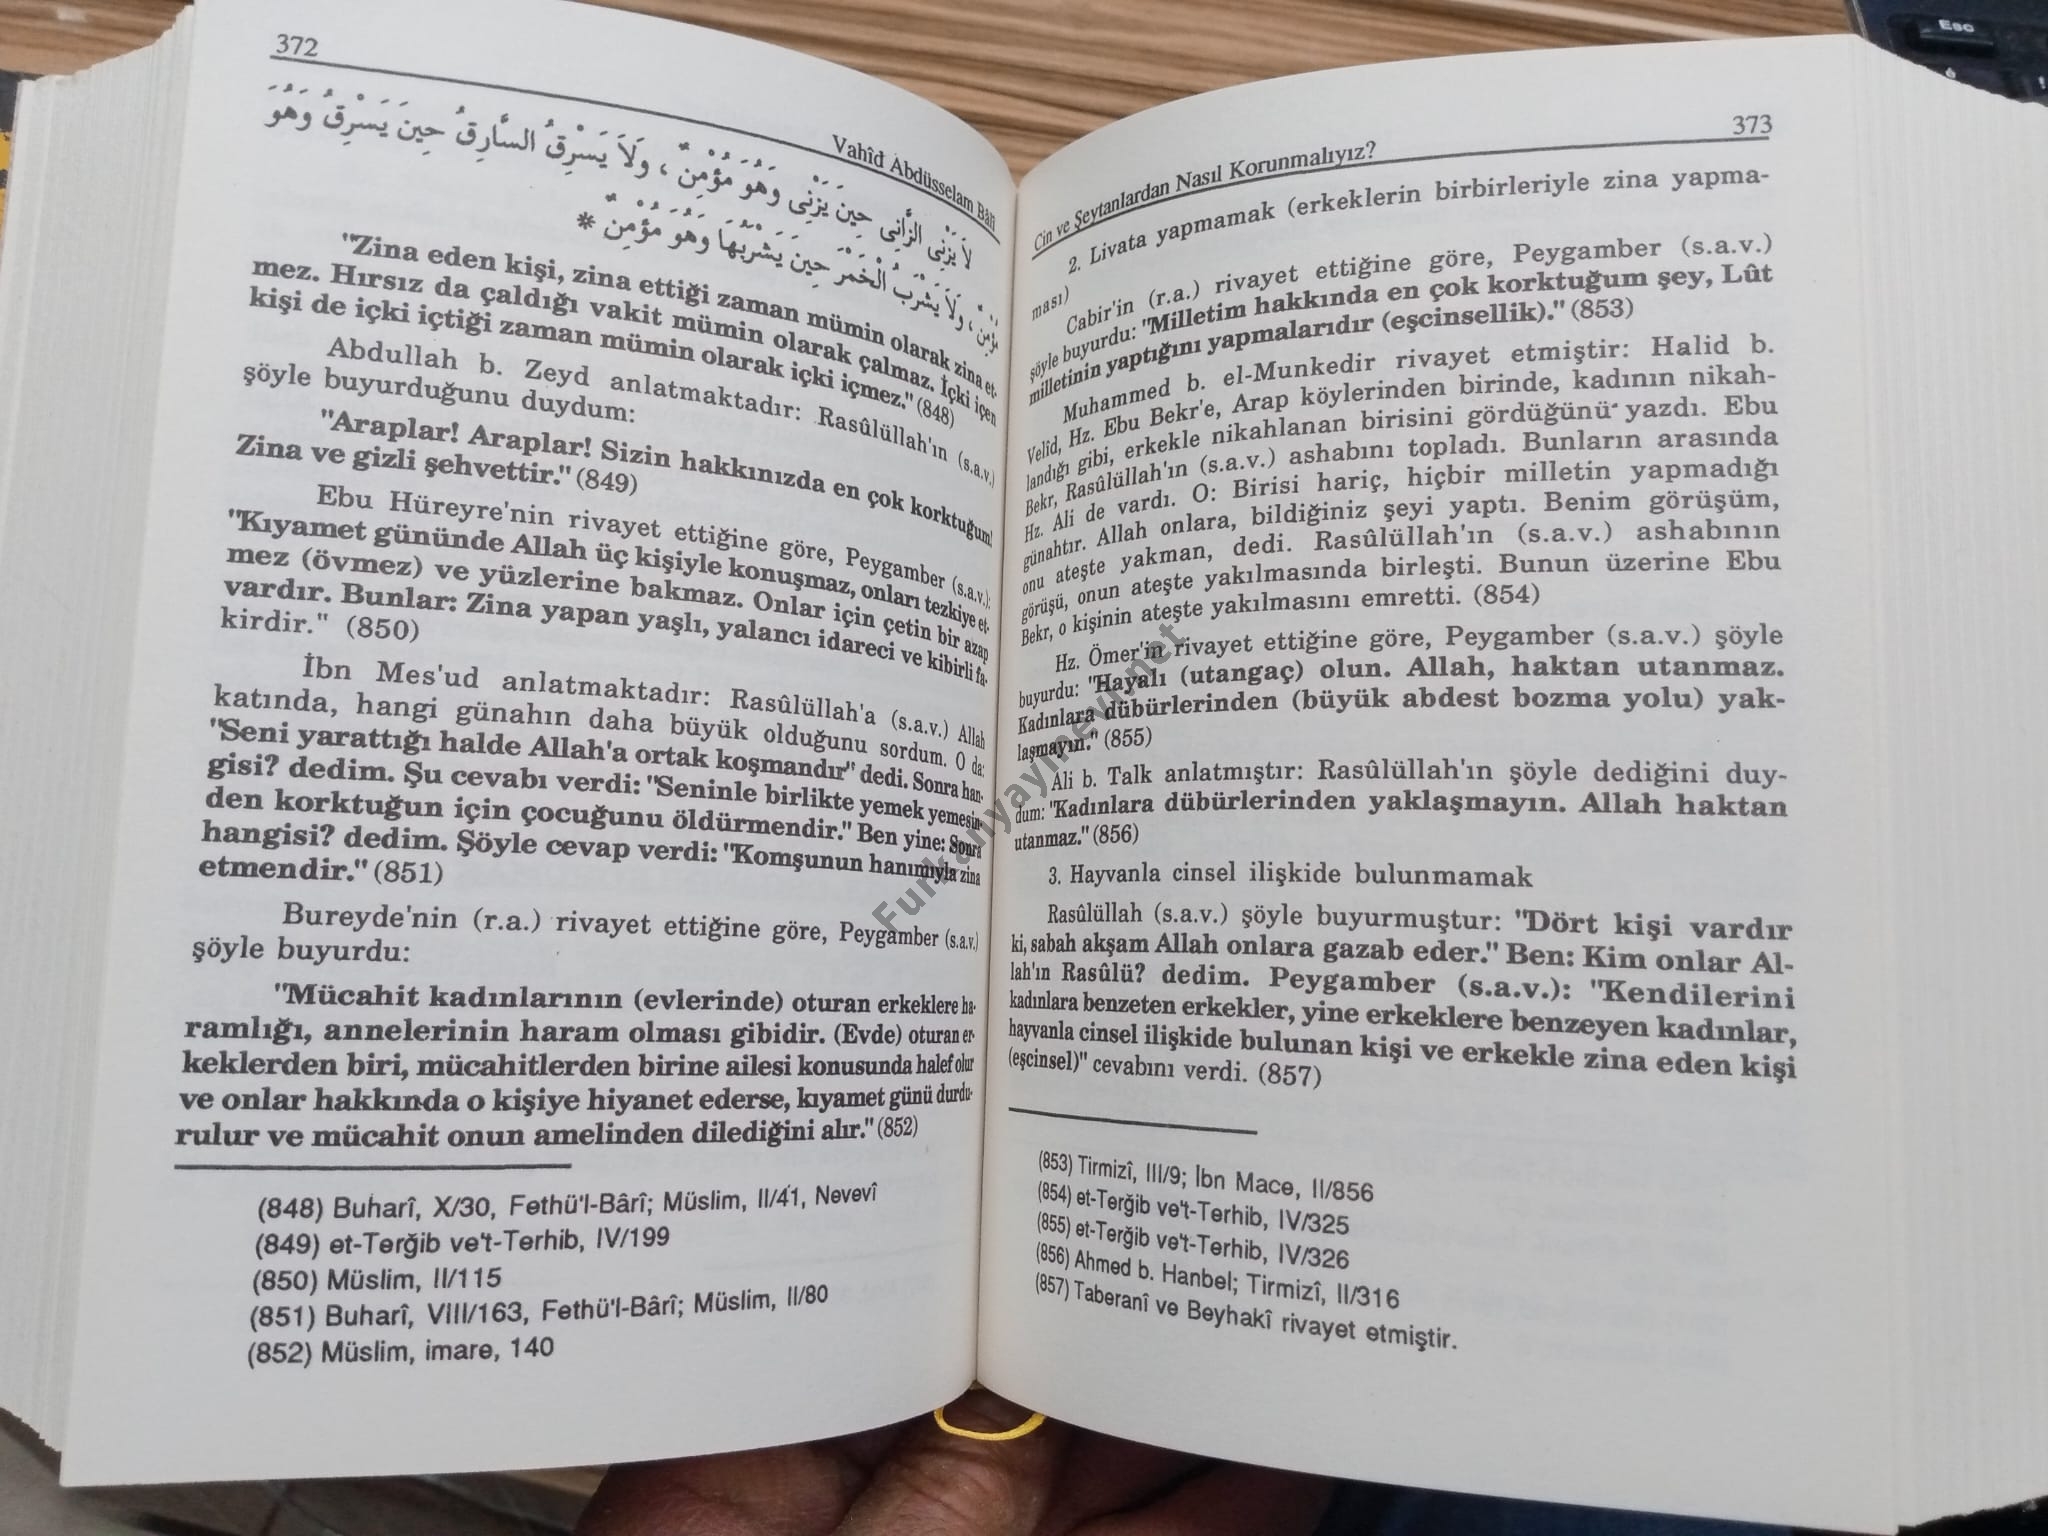 372
Vahîd Abdüsselam Bâlî
لاَ يَزْنِى الزَّانِى حِينَ يَزْنِى وَهُوَ مُؤْمِنٌ ، وَلاَ يَسْرِقُ السَّارِقُ حِينَ يَسْرِقُ وَهُوَ
مُؤْمِنٌ ، وَلاَ يَشْرَبُ الْخَمْرَ حِينَ يَشْرَبُهَا وَهُوَ مُؤْمِنٌ *
"Zina eden kişi, zina ettiği zaman mümin olarak zina et-
mez. Hırsız da çaldığı vakit mümin olarak çalmaz. İçki içen
kişi de içki içtiği zaman mümin olarak içki içmez." (848)
Abdullah b. Zeyd anlatmaktadır: Rasûlüllah'ın (s.a.v.)
şöyle buyurduğunu duydum:
"Araplar! Araplar! Sizin hakkınızda en çok korktuğum!
Zina ve gizli şehvettir." (849)
Ebu Hüreyre'nin rivayet ettiğine göre, Peygamber (s.a.v.):
"Kıyamet gününde Allah üç kişiyle konuşmaz, onları tezkiye et-
mez (övmez) ve yüzlerine bakmaz. Onlar için çetin bir azap
vardır. Bunlar: Zina yapan yaşlı, yalancı idareci ve kibirli fa-
kirdir." (850)
İbn Mes'ud anlatmaktadır: Rasûlüllah'a (s.a.v.) Allah
katında, hangi günahın daha büyük olduğunu sordum. O da:
"Seni yarattığı halde Allah'a ortak koşmandır" dedi. Sonra han-
gisi? dedim. Şu cevabı verdi: "Seninle birlikte yemek yemesin-
den korktuğun için çocuğunu öldürmendir." Ben yine: Sonra
hangisi? dedim. Şöyle cevap verdi: "Komşunun hanımıyla zina
etmendir." (851)
Bureyde'nin (r.a.) rivayet ettiğine göre, Peygamber (s.a.v.)
şöyle buyurdu:
"Mücahit kadınlarının (evlerinde) oturan erkeklere ha-
ramlığı, annelerinin haram olması gibidir. (Evde) oturan er-
keklerden biri, mücahitlerden birine ailesi konusunda halef olur
ve onlar hakkında o kişiye hiyanet ederse, kıyamet günü durdu-
rulur ve mücahit onun amelinden dilediğini alır." (852)
(848) Buharî, X/30, Fethü'l-Bârî; Müslim, II/41, Nevevî
(849) et-Terğib ve't-Terhib, IV/199
(850) Müslim, II/115
(851) Buharî, VIII/163, Fethü'l-Bârî; Müslim, II/80
(852) Müslim, imare, 140
373
Cin ve Şeytanlardan Nasıl Korunmalıyız?
2. Livata yapmamak (erkeklerin birbirleriyle zina yapma-
ması)
Cabir'in (r.a.) rivayet ettiğine göre, Peygamber (s.a.v.)
şöyle buyurdu: "Milletim hakkında en çok korktuğum şey, Lût
milletinin yaptığını yapmalarıdır (eşcinsellik)." (853)
Muhammed b. el-Munkedir rivayet etmiştir: Halid b.
Velîd, Hz. Ebu Bekr'e, Arap köylerinden birinde, kadının nikah-
landığı gibi, erkekle nikahlanan birisini gördüğünü yazdı. Ebu
Bekr, Rasûlüllah'ın (s.a.v.) ashabını topladı. Bunların arasında
Hz. Ali de vardı. O: Birisi hariç, hiçbir milletin yapmadığı
günahtır. Allah onlara, bildiğiniz şeyi yaptı. Benim görüşüm,
onu ateşte yakman, dedi. Rasûlüllah'ın (s.a.v.) ashabının
görüşü, onun ateşte yakılmasında birleşti. Bunun üzerine Ebu
Bekr, o kişinin ateşte yakılmasını emretti. (854)
Hz. Ömer'in rivayet ettiğine göre, Peygamber (s.a.v.) şöyle
buyurdu: "Hayalı (utangaç) olun. Allah, haktan utanmaz.
Kadınlara dübürlerinden (büyük abdest bozma yolu) yak-
laşmayın." (855)
Ali b. Talk anlatmıştır: Rasûlüllah'ın şöyle dediğini duy-
dum: "Kadınlara dübürlerinden yaklaşmayın. Allah haktan
utanmaz." (856)
3. Hayvanla cinsel ilişkide bulunmamak
Rasûlüllah (s.a.v.) şöyle buyurmuştur: "Dört kişi vardır
ki, sabah akşam Allah onlara gazab eder." Ben: Kim onlar Al-
lah'ın Rasûlü? dedim. Peygamber (s.a.v.): "Kendilerini
kadınlara benzeten erkekler, yine erkeklere benzeyen kadınlar,
hayvanla cinsel ilişkide bulunan kişi ve erkekle zina eden kişi
(eşcinsel)" cevabını verdi. (857)
(853) Tirmizî, III/9; İbn Mace, II/856
(854) et-Terğib ve't-Terhib, IV/325
(855) et-Terğib ve't-Terhib, IV/326
(856) Ahmed b. Hanbel; Tirmizî, II/316
(857) Taberanî ve Beyhakî rivayet etmiştir.
Furkanyayinevi.net
Esc